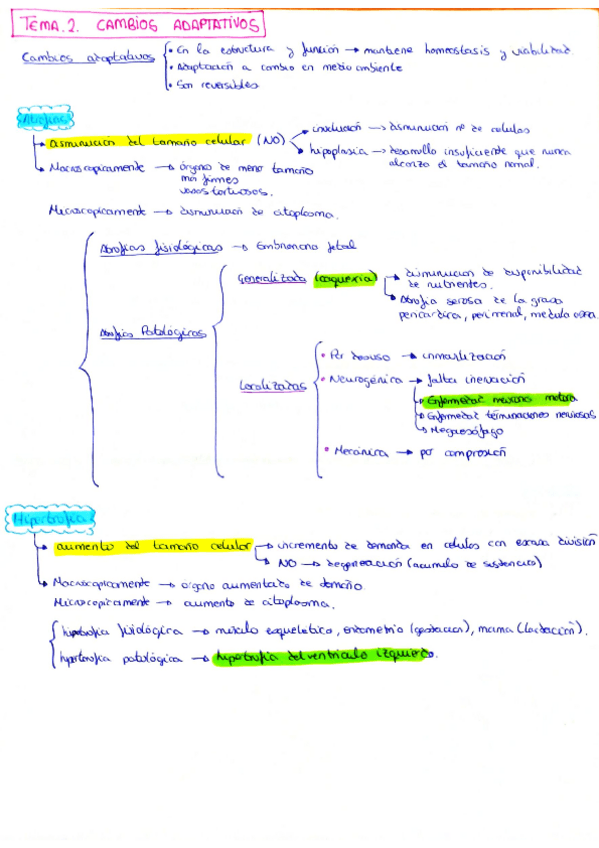 TEMA.2. CAMBIOS ADAPTATIVOS
Cambios adaptativos
• En la estructura y función → mantiene homeostasis y viabilidad
• Adaptación a cambio en medio ambiente
• Son reversibles
Atrofias
Disminución del tamaño celular (NO)
involución → disminución nº de células
hipoplasia → desarrollo insuficiente que nunca
alcanza el tamaño normal.
Macroscopicamente → órganos de meno tamaño
más firmes
vasos tortuosos.
Microscopicamente → disminución de citoplasma.
Atrofias fisiológicas → Embrionaria fetal
Atrofias Patológicas
Generalizada (caquexia)
disminución de disponibilidad
de nutrientes.
Atrofia serosa de la grasa
pericardica, perirrenal, medula osea.
Localizadas
• Por desuso → inmovilización
• Neurogénica → falta inervación
Enfermedad neurona motora
Enfermedad terminaciones nerviosas
Megaesófago
• Mecánica → por compresión
Hipertrofia
aumento del tamaño celular
incremento de demanda en celulas con escasa división
NO → degeneración (acumulo de sustancias)
Macroscopicamente → organo aumentado de tamaño.
Microscopicamente → aumento de citoplasma.
hipertrofia fisiológica → músculo esqueletico, endometrio (gestacion), mama (lactación).
hipertrofia patológica → hipertrofia del ventriculo izquierdo.